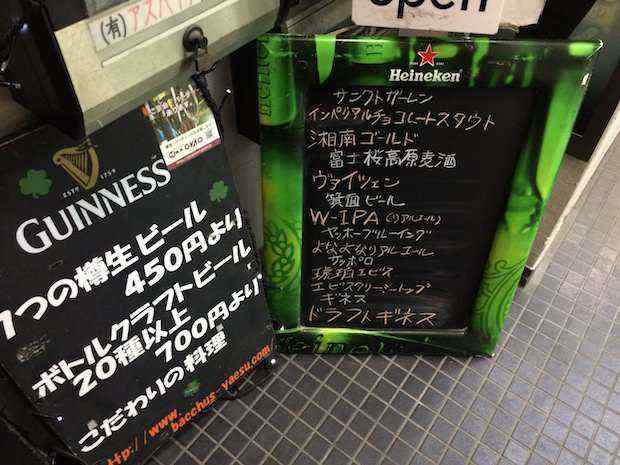 (有)アスベ
GUINNESS
ESTD 1759
7つの樽生ビール
450円より
ボトルクラフトビール
20種以上
700円より
こだわりの料理
http://www.bacchus-yaesu.com/
Open
Heineken
サンクトガーレン
インペリアルチョコレートスタウト
湘南ゴールド
富士桜高原麦酒
ヴァイツェン
箕面ビール
W-IPA(リアルエール)
ヤッホーブルーイング
よなよなリアルエール
サッポロ
琥珀エビス
エビスクリーミートップ
ギネス
ドラフトギネス